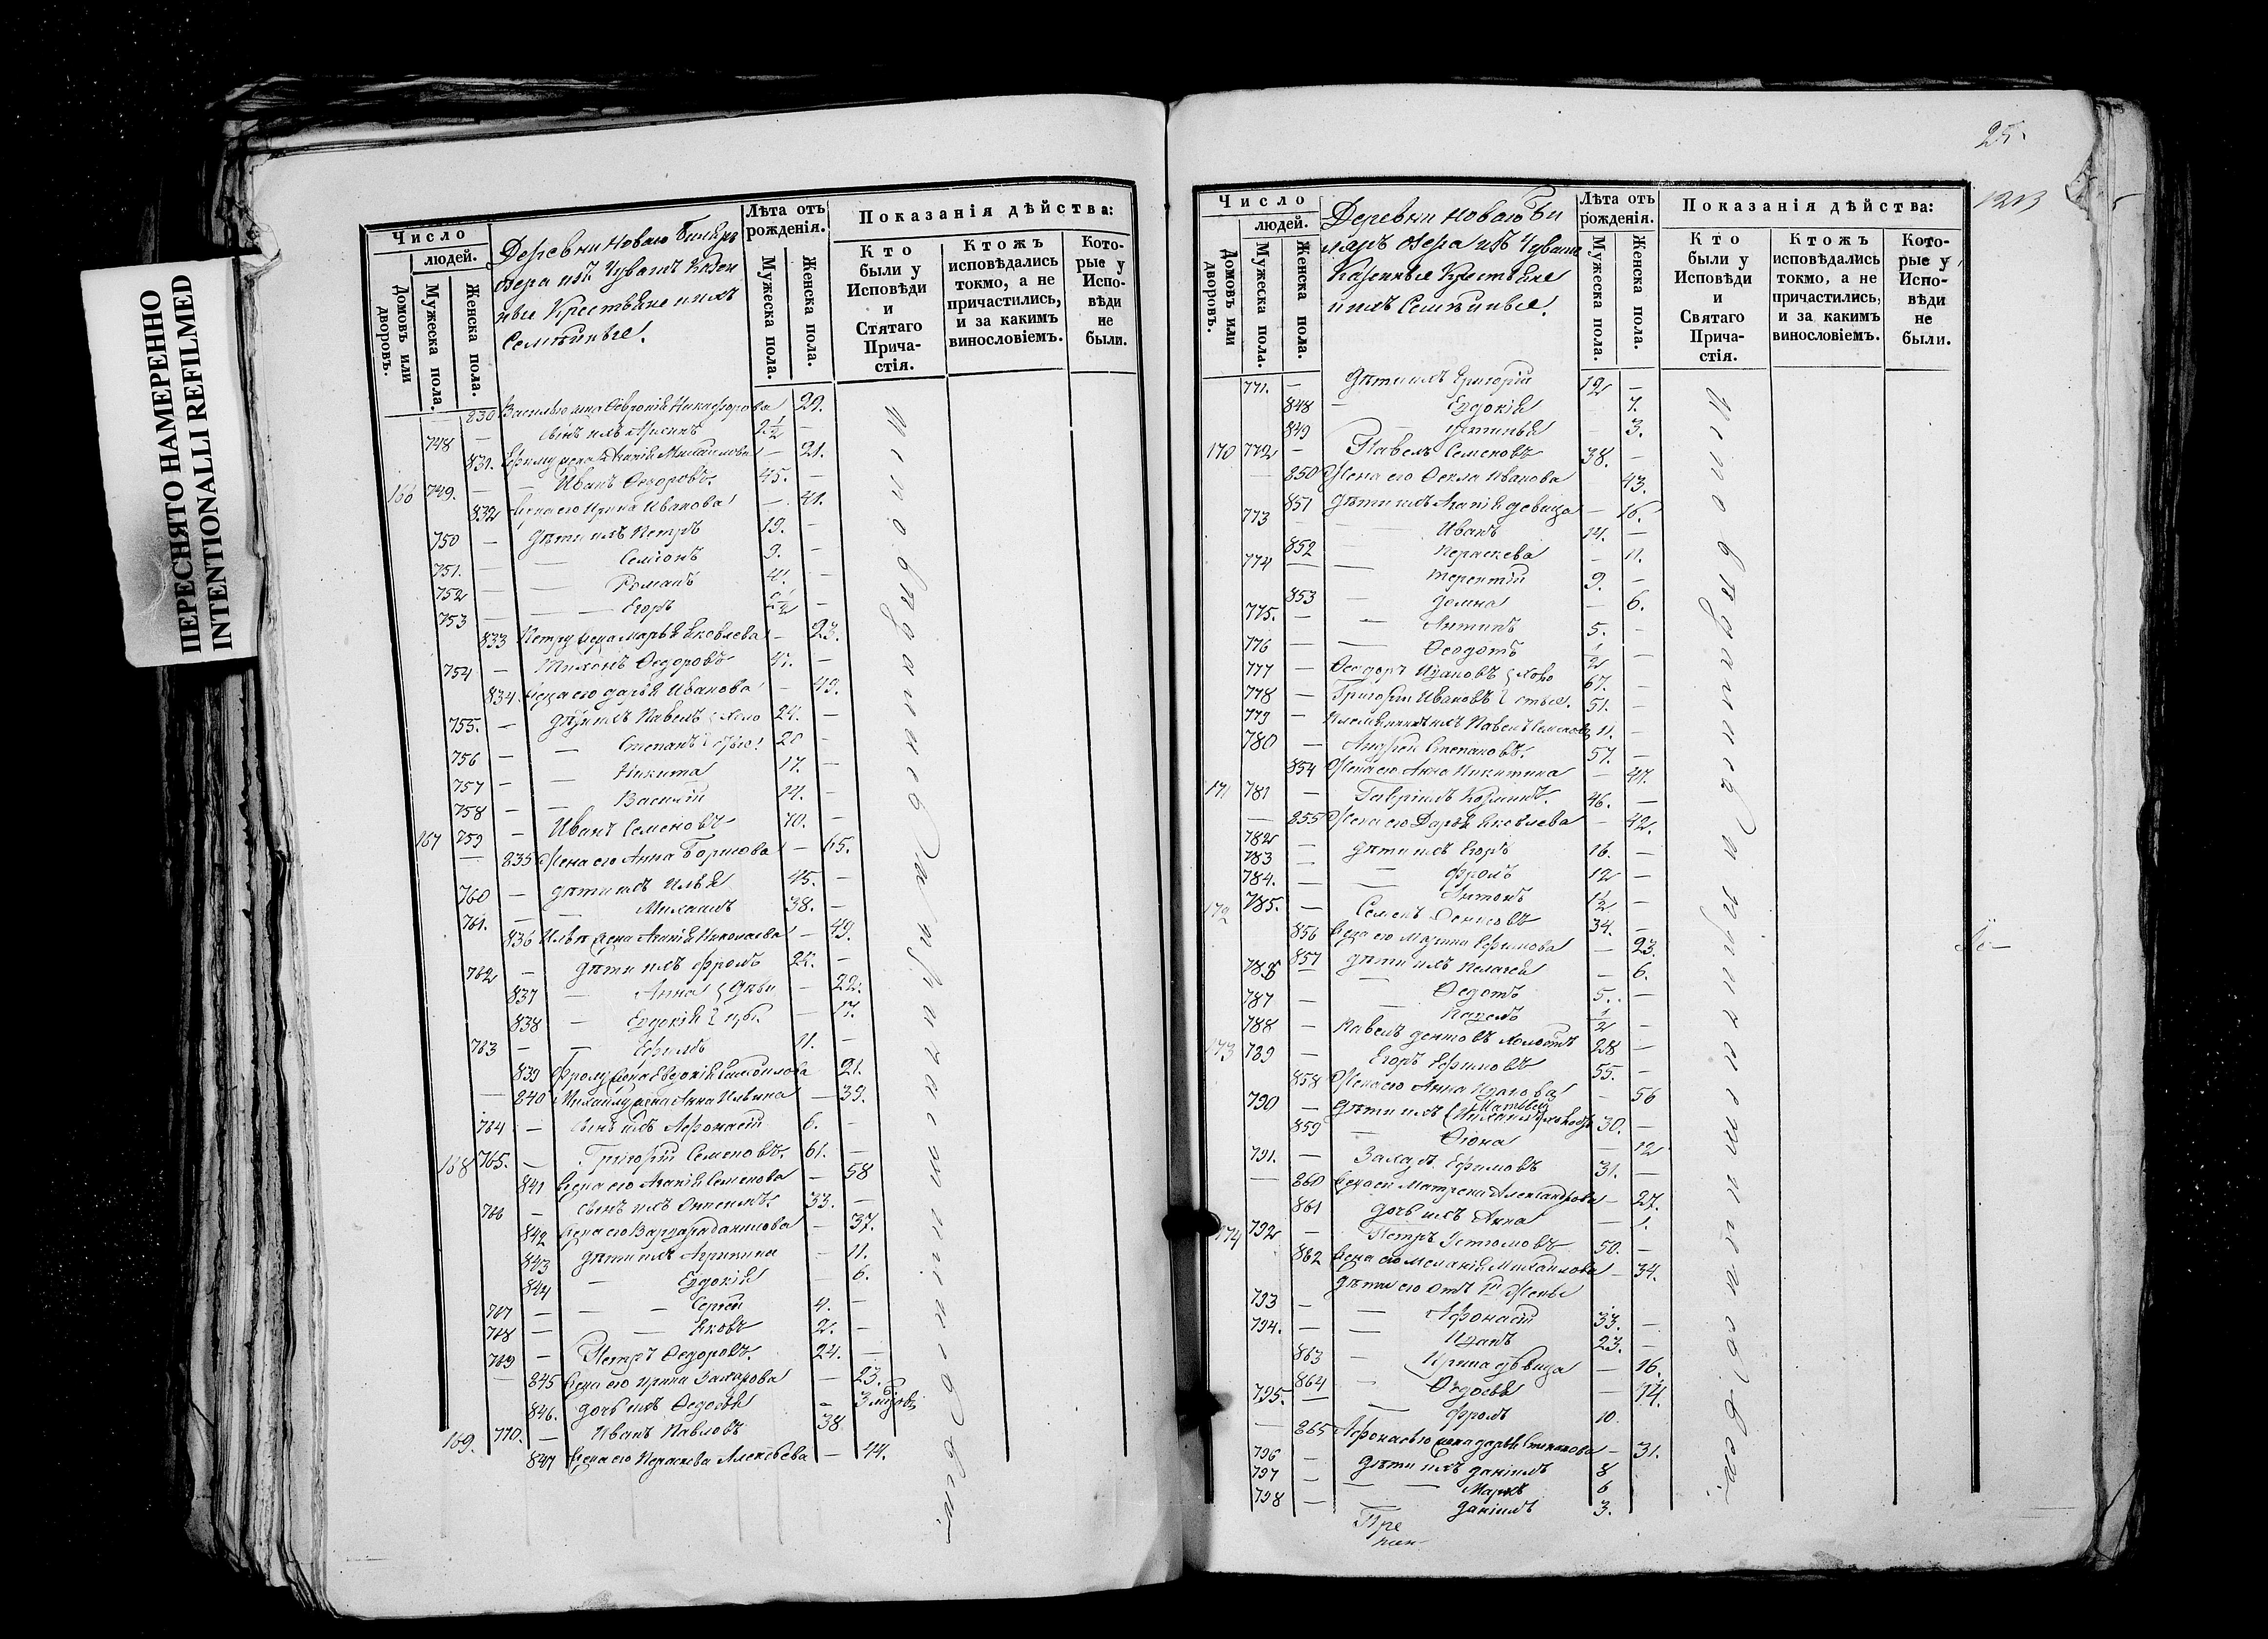 ПЕРЕСНЯТО НАМЕРЕННО
INTENTIONALLI REFILMED
Число
людей.
Домовъ или дворовъ.
Мужеска пола.
Женска пола.
Деревни Новаго Билярь
озера изъ Чувашъ Казен
ные Крестьяне и ихъ
Семейные.
Лѣта отъ рожденія.
Мужеска пола.
Женска пола.
Показанія дѣйства:
Кто были у Исповѣди и Стятаго Причастія.
Ктожъ исповѣдались токмо, а не причастились, и за какимъ винословіемъ.
Которые у Исповѣди не были.
830 Василью жена Феврония Никифорова 29.
748 — сынъ ихъ 2½ —
831. Ефиму жена Михайлова — 21.
166 749. — Иванъ Федоровъ 45. —
832 жена его Ирина Иванова — 41.
750 — дѣти ихъ Петръ 19. —
751. — Семіонъ 9. —
752 — Романъ 4. —
753 — Егоръ ½ —
833 Петру жена Марья Яковлева — 23.
754 — Тихонъ Федоровъ 47. —
834. жена его Дарья Иванова — 49.
755. — дѣти ихъ Павелъ холо 24. —
756 — Степанъ стые 20 —
757 — Никита 17. —
758 — Василій 14. —
167 759 — Иванъ Семеновъ 70. —
835 Жена его Анна Борисова — 65.
760 — дѣти ихъ Илья 45. —
761. — Михаилъ 38. —
836 Ильѣ жена Агафія Николаева — 49.
762 — дѣти ихъ Фролъ 24. —
837 — Анна дѣви — 22.
838 — Евдокія цы. — 17.
763 — Ефимъ 11. —
839 Фролу жена Евдокія 21.
840 Михайлу жена Анна Ильина — 39.
764 — Сынъ ихъ Афонасій 6. —
168 765. — Григорій Семеновъ. 61. —
841 жена его Агафія Семенова — 58
766 — сынъ ихъ 33. —
842 жена его Варвара Данилова — 37.
843 дѣти ихъ Агрипина — 11.
844 — Евдокія — 6.
767 — Сергѣй 4. —
768 — Яковъ 2. —
769 — Петръ Федоровъ. 24. —
845 жена его Ирина Захарова — 23.
846. дочь ихъ Федосья —
169. 770. — Иванъ Павловъ 38
847 жена его Параскева Алексѣева — 44.
Исповѣдались и причастились всѣ.
25.
1213
Число
людей.
Домовъ или дворовъ.
Мужеска пола.
Женска пола.
Деревни Новаго Би
ляръ озера изъ Чувашъ
Казенные Крестьяне
и ихъ Семейные.
Лѣта отъ рожденія.
Мужеска пола.
Женска пола.
Показанія дѣйства:
Кто были у Исповѣди и Святаго Причастія.
Ктожъ исповѣдались токмо, а не причастились, и за какимъ винословіемъ.
Которые у Исповѣди не были.
771. — дѣти ихъ Григорій 12 —
848 — Евдокія 7.
849 — Устинья 3.
170 772 — Павелъ Семеновъ 38. —
850 Жена его Фекла Иванова 43.
851 дѣти ихъ Агафія девица — 16.
773 — Иванъ 14. —
852 Параскева — 11.
774 — Терентій 9. —
853 — Домна — 6.
775. — Антипъ 5. —
776 — Федотъ ½ —
777 — Федоръ Ивановъ холо 67. —
778 — Григорій Ивановъ стые. 51. —
779 — Племянникъ ихъ Павелъ Семеновъ 11. —
780 — Андрей Степановъ. 57. —
854 Жена его Анна Никитина — 47.
171 781 — Гавріилъ Козминъ. 46. —
855 Жена его Дарья Яковлева — 42.
782 — дѣти ихъ Егоръ 16. —
783 — Фролъ 12 —
784. — Антонъ 1½ —
172 785. — Семенъ Денисовъ 34. —
856 жена его Марина Ефимова — 23.
857 дѣти ихъ Пелагея — 6.
786 —
787 — Федотъ 5. —
— Павелъ ½ —
788 — Павелъ холостъ 28 —
173 789 — Егоръ Ефимовъ 55. —
858 Жена его Анна — 56
790 — дѣти ихъ 30. —
859 — Фіона — 12
791. — Захаръ Ефимовъ 31. —
860 жена его Матрена Александрова — 27.
861 дочь ихъ Анна — 1.
174 792 — Петръ 50. —
862 жена его Меланія Михайлова — 34.
дѣти его отъ 1й жены
793 — Афонасій 33. —
794. — Иванъ 23. —
863 — Ирина дѣвица — 16.
864 — Федосья — 14.
795. — Фролъ 10.
865 Афонасью жена Дарья Степанова — 31.
796 — дѣти ихъ Даніилъ 8
797 — Маркъ 6
798 — Даніилъ 3.
Исповѣдались и причастились всѣ.